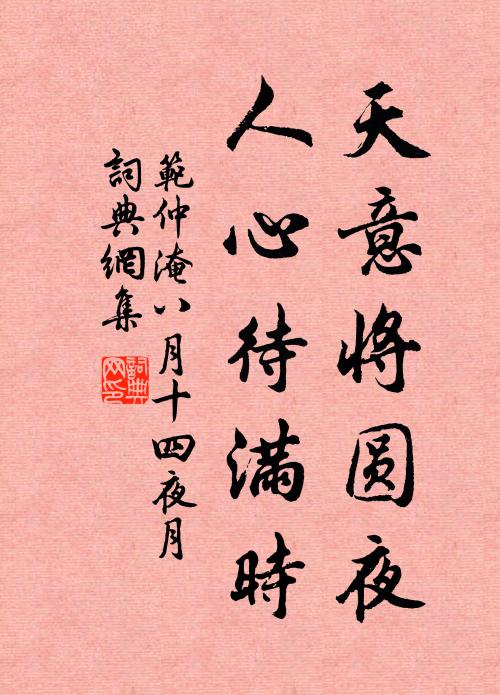 天意將圆夜
人心待滿時
範仲淹八月十四夜月
詞典網集
詞典網印